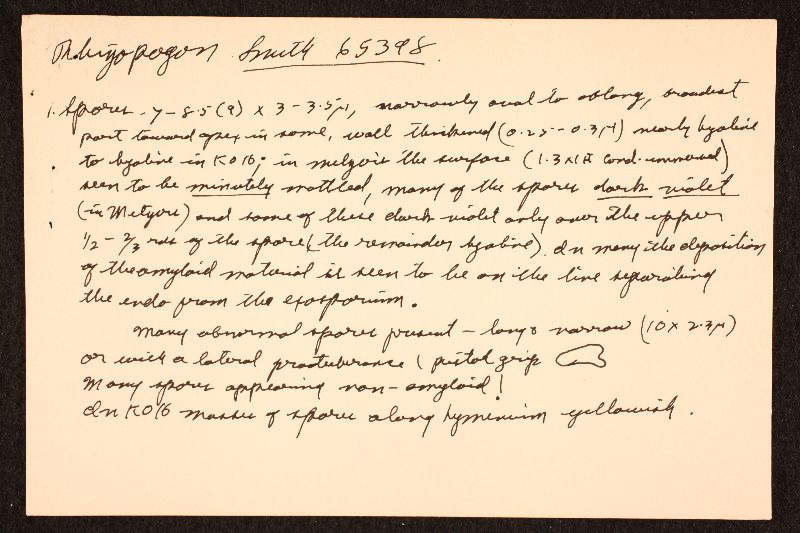 Rhizopogon Smith 65398
1. Spores 7-8.5(9) x 3-3.5µ, narrowly oval to oblong, broadest
part toward apex in some, wall thickened (0.25-0.3µ) nearly hyaline
to hyaline in KOH; in melzer's the surface (1.3 NA cond. immersed)
seen to be minutely mottled, many of the spores dark violet
(in Melzers) and some of these dark violet only over the upper
1/2 - 2/3 rds of the spore (the remainder hyaline). In many the deposition
of the amyloid material is seen to be on the line separating
the endo from the exosporium.
Many abnormal spores present - long & narrow (10 x 2.3µ)
or with a lateral protuberance (pistol grip
Many spores appearing non-amyloid!
In KOH masses of spores along hymenium yellowish.